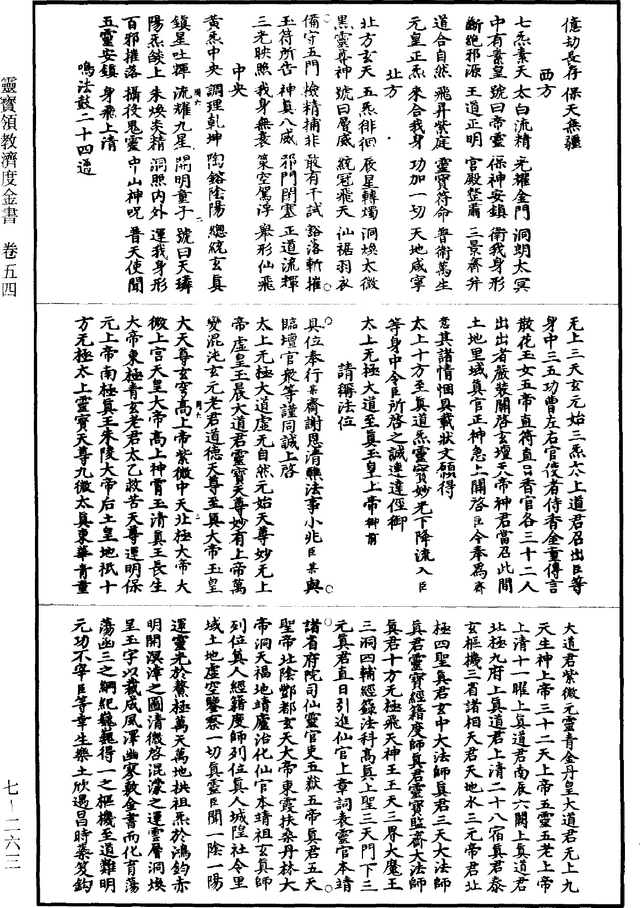 億劫長存　保天無疆
西方
七炁素天　太白流精　光耀金門　洞朗太冥
中有素皇　號曰帝靈　保神安鎮　衛我身形
斷絕邪源　王道正明　宮殿整肅　三景齊并
道合自然　飛昇紫庭　靈寶符命　普術萬生
元皇正炁　來合我身　功加一切　天地咸寧
北方
北方玄天　五炁徘徊　辰星轉燭　洞煥太微
黑靈尊神　號曰層威　統冠飛天　仙裾羽衣
備守五門　檢精捕非　敢有干試　豁落斬摧
玉符所告　神真八威　邪門閉塞　正道流輝
三光映照　我身無衰　策空駕浮　舉形仙飛
中央
黃炁中央　調理乾坤　陶鎔陰陽　總統玄真
鎮星吐揮　流耀九星　開明童子　號曰天璘
陽炁燄上　朱煥炎精　洞照內外　運我身形
百邪摧落　攝役鬼靈　中山神呪　普天使聞
五靈安鎮　身飛上清
鳴法鼓二十四通
無上三天玄元始三炁太上道君召出臣等
身中三五功曹左右官使者侍香金童傳言
散花玉女五帝直符直日香官各三十二人
出出者嚴裝關啓玄壇天帝神君當召此間
土地里域真官正神急上關啓臣今奉爲齋
意其諸情悃具載狀文願得
太上十方至真道炁靈寶妙光下降流入臣
等身中令臣所啓之誠速達徑御
太上無極大道至真玉皇上帝御前
請稱法位
具位奉行某齋謝恩清醮法事小兆臣某與
臨壇官衆等謹同誠上啓
太上無極大道虛無自然元始天尊妙無上
帝虛皇玉晨大道君靈寶天尊妙有上帝萬
變混沌玄元老君道德天尊至真大帝玉皇
大天尊玄穹高上帝紫微中天北極大帝大
微上宮天皇大帝高上神霄玉清真王長生
大帝東極青玄老君太乙救苦天尊運明保
元上帝南極真王朱陵大帝后土皇地祇十
方無極太上靈寶天尊九微太真東華青童
大道君紫微元靈青金丹皇大道君無上九
天生神上帝三十二天上帝五靈五老上帝
上清十一曜上真道君南辰六閣上真道君
北極九府上真道君上清二十八宿真君泰
玄樞機三省諸相天君天地水三元帝君北
極四聖真君玄中大法師真君三天大法師
真君靈寶經籍度師真君靈寶監齋大法師
真君十方無極飛天神王三天三界大魔王
三洞四輔經籙法科高真上聖三天門下三
元真君直日引進仙官上章詞表靈官本靖
諸省府院司仙靈官吏五嶽五帝真君五天
聖帝北陰酆都玄天大帝東霞扶桑丹林大
帝洞天福地靖廬治化仙官本靖祖玄真師
列位真人經籍度師列位真人城隍社令里
域土地虛空鑒察一切真靈臣聞一陰一陽
運靈光於鰲極萬天萬地拱祖炁於鴻鈞赤
明開溟涬之圖清微啓混濛之運靈層洞煥
呈玉字以載成風澤幽寥敷金書而化育蕩
蕩函三之綱紀巍巍得一之樞機至道難明
元功不宰臣等幸生樂土欣遇昌時綦笈鈎
靈寶領教濟度金書　卷五四
七－二六三